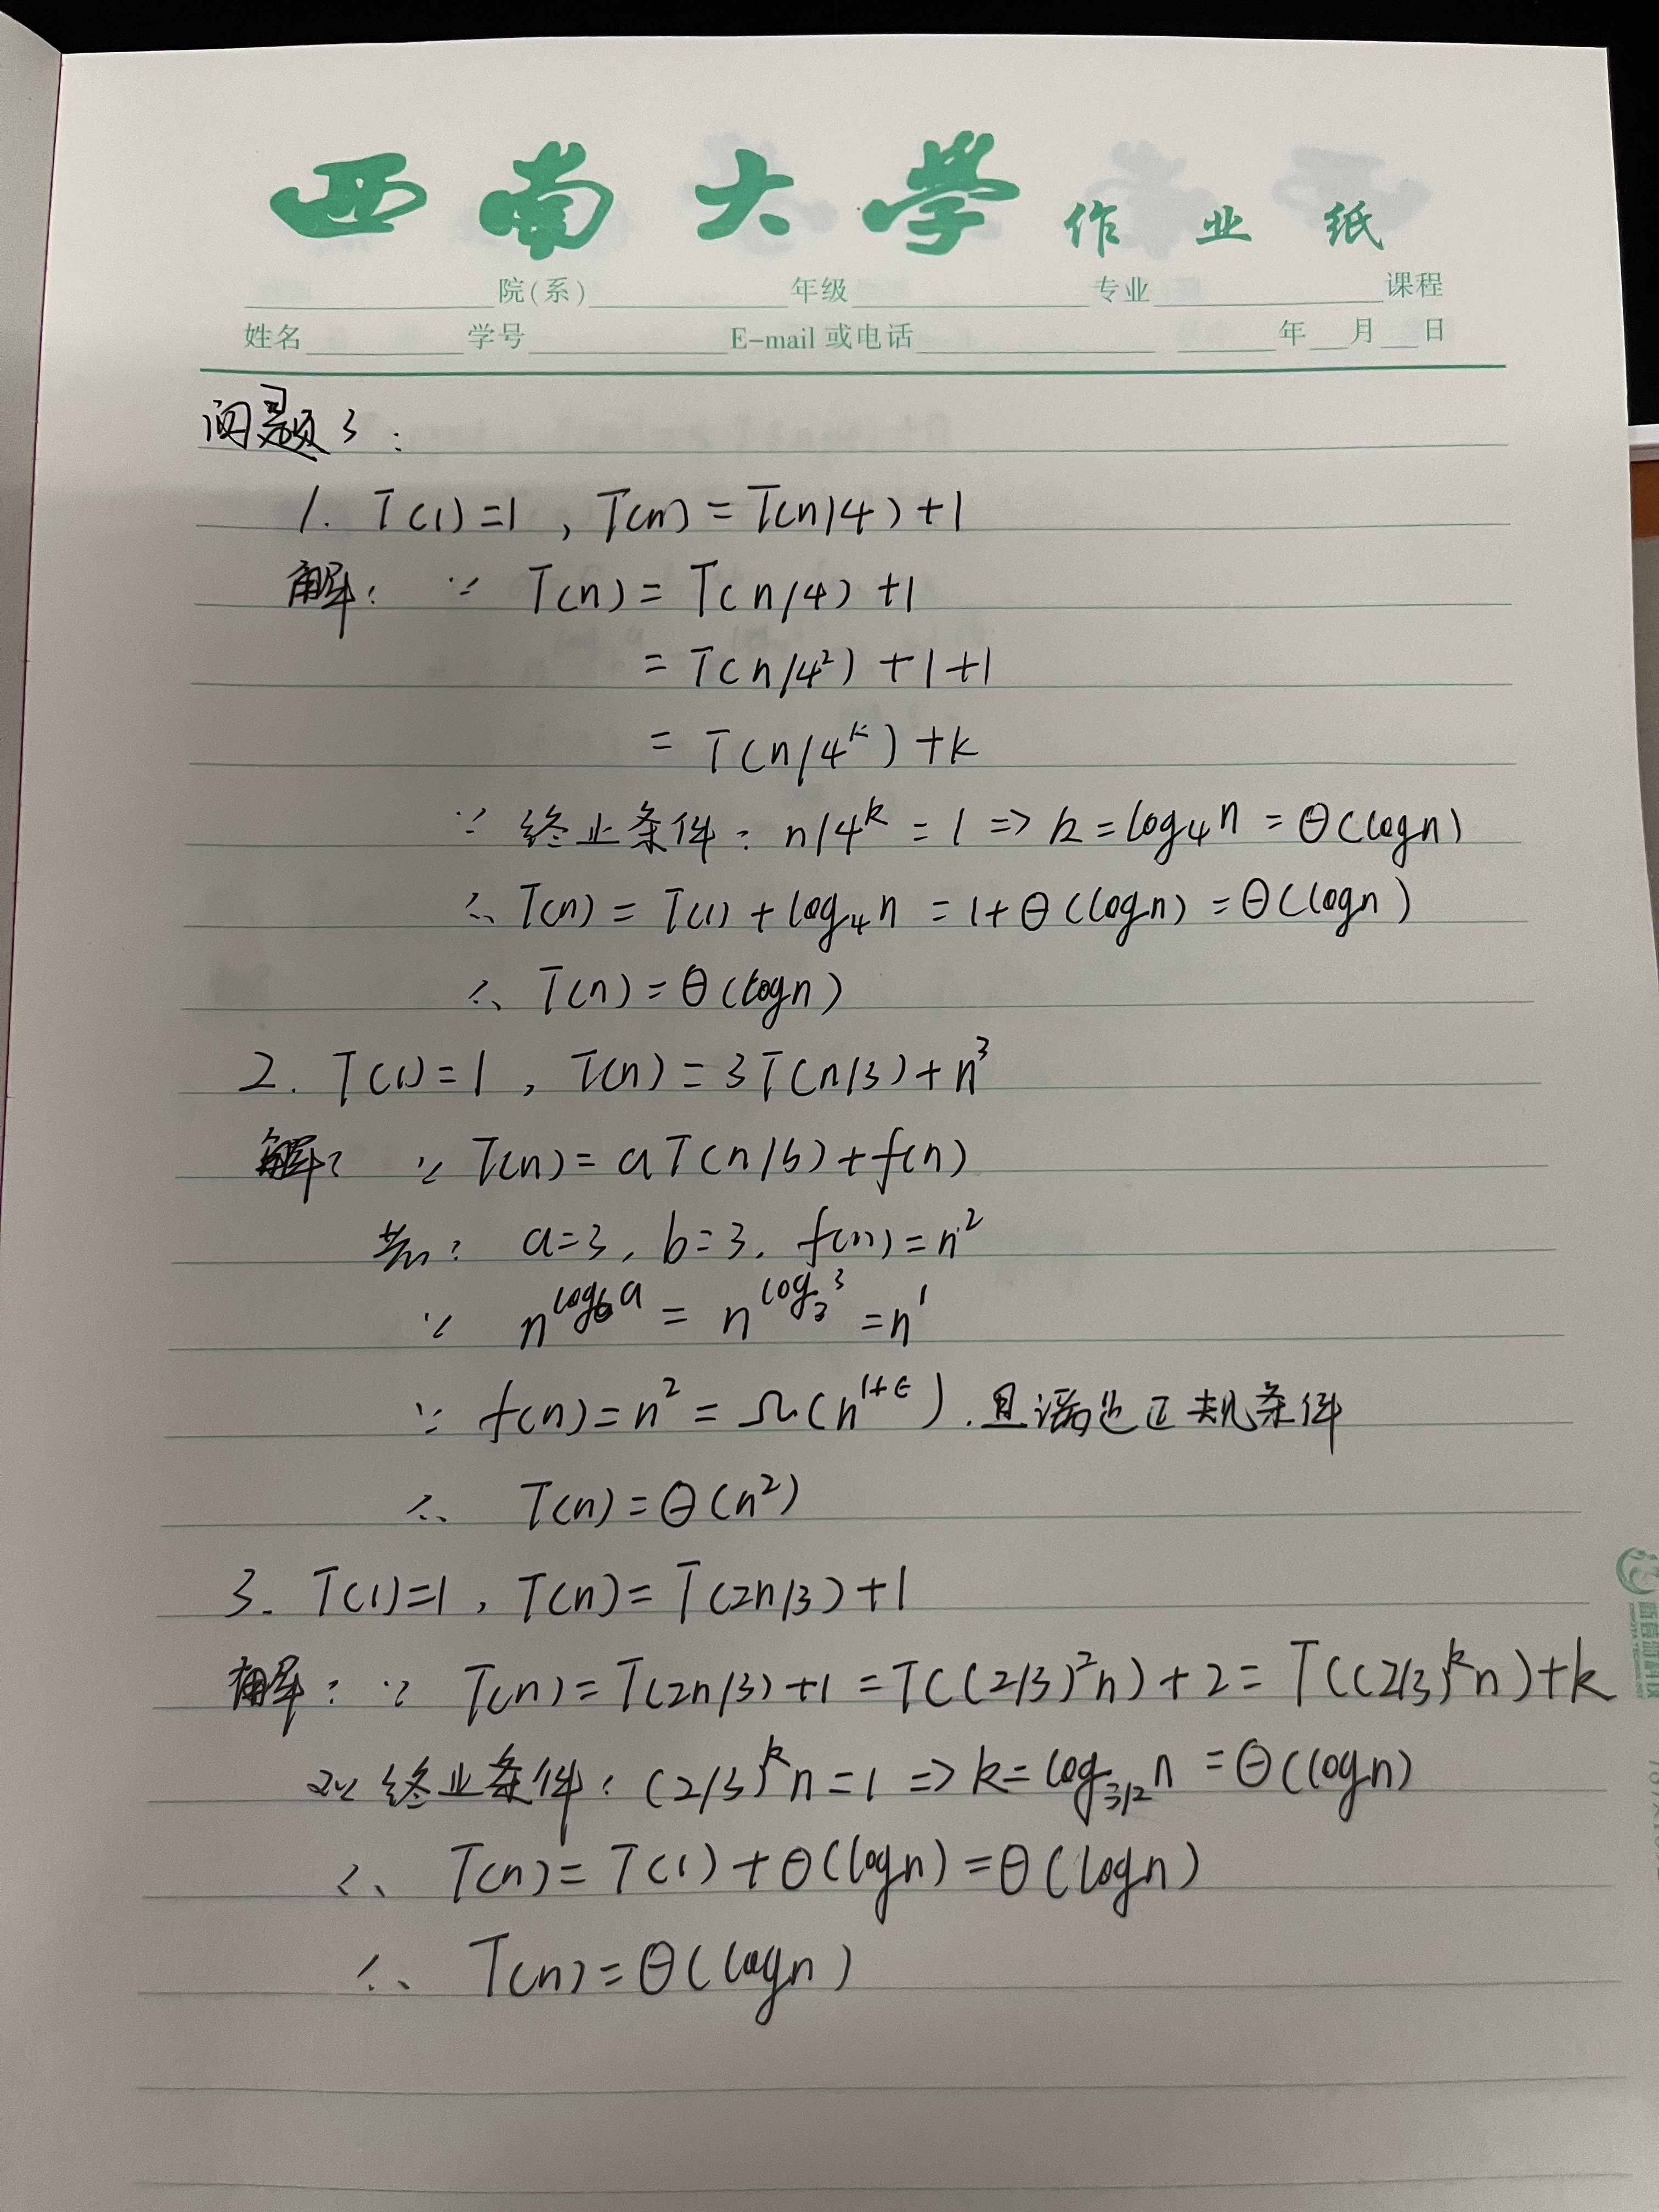 西南大学作业纸
院(系) 年级 专业 课程
姓名 学号 E-mail 或电话 年 月 日
问题3:
1. T(1)=1, T(n)=T(n/4)+1
解: ∵ T(n)=T(n/4)+1
=T(n/4²)+1+1
=T(n/4ᵏ)+k
∵ 终止条件: n/4ᵏ=1 => k=log₄n=Θ(logn)
∴ T(n)=T(1)+log₄n=1+Θ(logn)=Θ(logn)
∴ T(n)=Θ(logn)
2. T(1)=1, T(n)=3T(n/3)+n³
解: ∵ T(n)=aT(n/b)+f(n)
a=3, b=3, f(n)=n²
∵ n^{log_b a}=n^{log₃3}=n¹
∵ f(n)=n²=Ω(n^{1+ε}), 且满足正规条件
∴ T(n)=Θ(n²)
3. T(1)=1, T(n)=T(2n/3)+1
解: ∵ T(n)=T(2n/3)+1=T((2/3)²n)+2=T((2/3)ᵏn)+k
终业条件: (2/3)ᵏn=1 => k=log_{3/2}n=Θ(logn)
∴ T(n)=T(1)+Θ(logn)=Θ(logn)
∴ T(n)=Θ(logn)